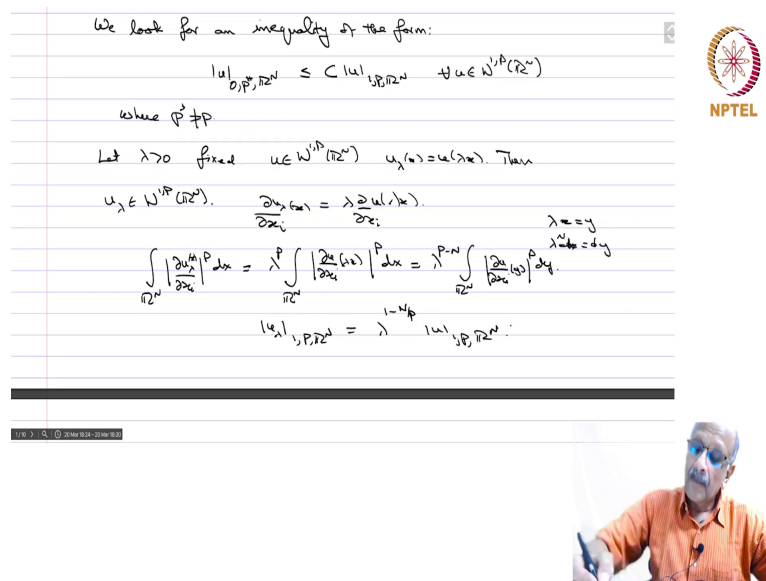 We look for an inequality of the form:
|u|_{0,p*,ℝ^N} ≤ C |u|_{1,p,ℝ^N} ∀ u ∈ W^{1,p}(ℝ^N)
where p* ≠ p
Let λ>0 fixed u ∈ W^{1,p}(ℝ^N) u_λ(x) = u(λx). Then
u_λ ∈ W^{1,p}(ℝ^N). ∂u_λ/∂x_i (x) = λ ∂u/∂x_i (λx).
λx = y
λ^N dx = dy
∫_{ℝ^N} |∂u_λ/∂x_i (x)|^p dx = λ^p ∫_{ℝ^N} |∂u/∂x_i (λx)|^p dx = λ^{p-N} ∫_{ℝ^N} |∂u/∂x_i (y)|^p dy.
|u_λ|_{1,p,ℝ^N} = λ^{1-N/p} |u|_{1,p,ℝ^N}.
NPTEL
1/10 20 Mar 18:24 – 20 Mar 18:30